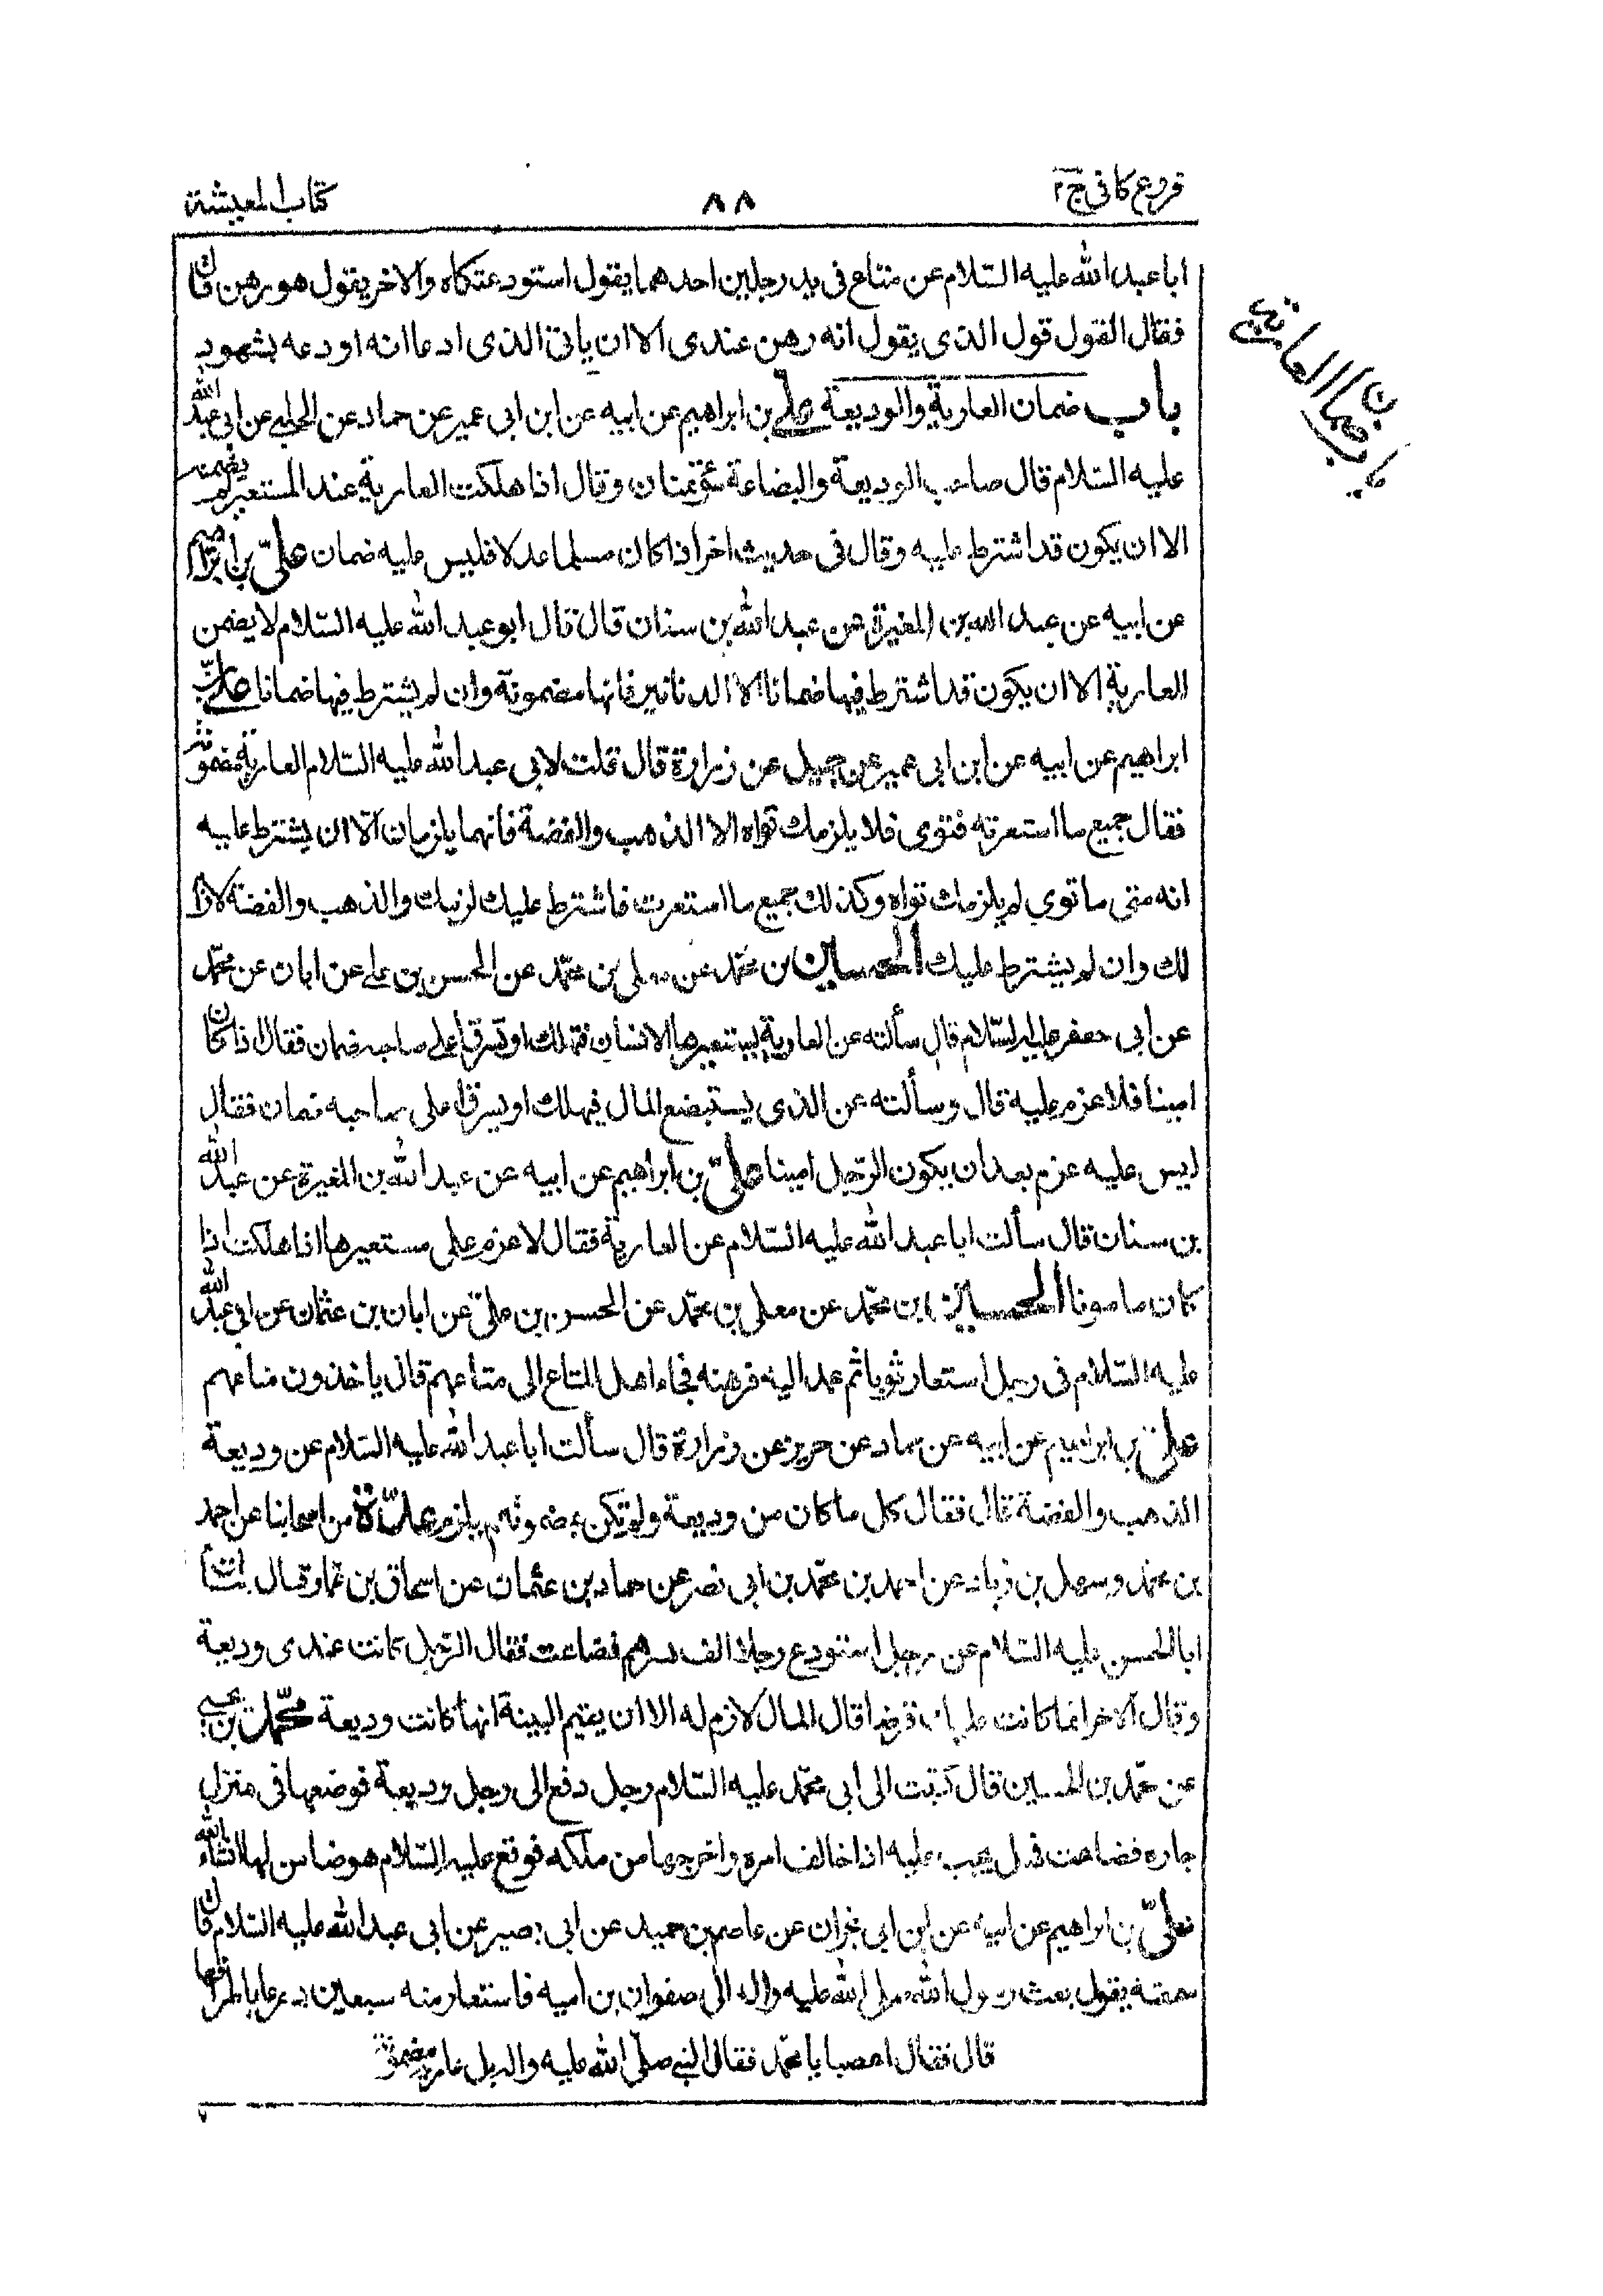 فروع كافى ج٢
٨٨
كتاب المعيشة
ابا عبد الله عليه السّلام عن متاع فى يد رجلين احدهما يقول استودعتكاه والاخر يقول هو رهن قال
فقال القول قول الذى يقول انه رهن عندى الا ان ياتى الذى ادعا انه اودعه بشهود
باب ضمان العارية والوديعة علي بن ابراهيم عن ابيه عن ابن ابى عمير عن حماد عن الحلبى عن ابى عبد الله
عليه السّلام قال صاحب الوديعة والبضاعة مؤتمنان وقال اذا هلكت العارية عند المستعير لم يضمنه
الا ان يكون قد اشترط عليه وقال فى حديث اخر اذا كان مسلما عدلا فليس عليه ضمان علىّ بن ابراهيم
عن ابيه عن عبد الله بن المغيرة عن عبد الله بن سنان قال قال ابو عبد الله عليه السّلام لا يضمن
العارية الا ان يكون قد اشترط فيها ضمانا الا الدنانير فانها مضمونة وان لم يشترط فيها ضمانا علىّ بن
ابراهيم عن ابيه عن ابن ابى عمير عن جميل عن زرارة قال قلت لابى عبد الله عليه السّلام العارية مضمونة
فقال جميع ما استعرته فتوى فلا يلزمك تواه الا الذهب والفضة فانهما يلزمان الّا ان يشترط عليه
انه متى ما توى لم يلزمك تواه وكذلك جميع ما استعرت فاشترط عليك لزمك والذهب والفضة لازم
لك وان لم يشترط عليك الحسين بن محمّد عن معلى بن محمّد عن الحسن بن على عن ابان عن محمّد
عن ابى جعفر عليه السّلام قال سألته عن العارية يستعيرها الانسان فتهلك او تسرق اعلى صاحبه ضمان فقال اذا كان
امينا فلا غرم عليه قال وسألته عن الذى يستبضع المال فيهلك او يسرق اعلى صاحبه ضمان فقال
ليس عليه غرم بعد ان يكون الرّجل امينا علىّ بن ابراهيم عن ابيه عن عبد الله بن المغيرة عن عبد الله
بن سنان قال سألت ابا عبد الله عليه السّلام عن العارية فقال لا غرم على مستعيرها اذا هلكت اذا
كان مامونا الحسين بن محمّد عن معلى بن محمّد عن الحسن بن علىّ عن ابان بن عثمان عن ابى عبد الله
عليه السّلام فى رجل استعار ثوبا ثم عمد اليه فرهنه فجاء اهل المتاع الى متاعهم قال ياخذون متاعهم
علىّ بن ابراهيم عن ابيه عن حماد عن حريز عن زرارة قال سألت ابا عبد الله عليه السّلام عن وديعة
الذهب والفضة قال فقال كل ما كان من وديعة ولم تكن مضمونة لم يلزم عدّة من اصحابنا عن احمد
بن محمّد وسهل بن زياد عن احمد بن محمّد بن ابى نصر عن حماد بن عثمان عن اسحاق بن عمار قال سألت
ابا الحسن عليه السّلام عن رجل استودع رجلا الف درهم فضاعت فقال الرّجل كانت عندى وديعة
وقال الآخر انما كانت عليك قرضا قال المال لازم له الا ان يقيم البينة انها كانت وديعة محمّد بن يحيى
عن محمّد بن الحسين قال كتبت الى ابى محمّد عليه السّلام رجل دفع الى رجل وديعة فوضعها فى منزل
جاره فضاعت فهل يجب عليه اذا خالف امره واخرجها من ملكه فوقع عليه السّلام هو ضامن لها انشاء الله
علىّ بن ابراهيم عن ابيه عن ابن ابى نجران عن عاصم بن حميد عن ابى بصير عن ابى عبد الله عليه السّلام قال
سمعته يقول بعث رسول الله صلى الله عليه واله الى صفوان بن امية فاستعار منه سبعين درعا باطراقها
قال فقال اغصبا يا محمّد فقال النبى صلّى الله عليه واله بل عارية مضمونة
باب ضمان العارية